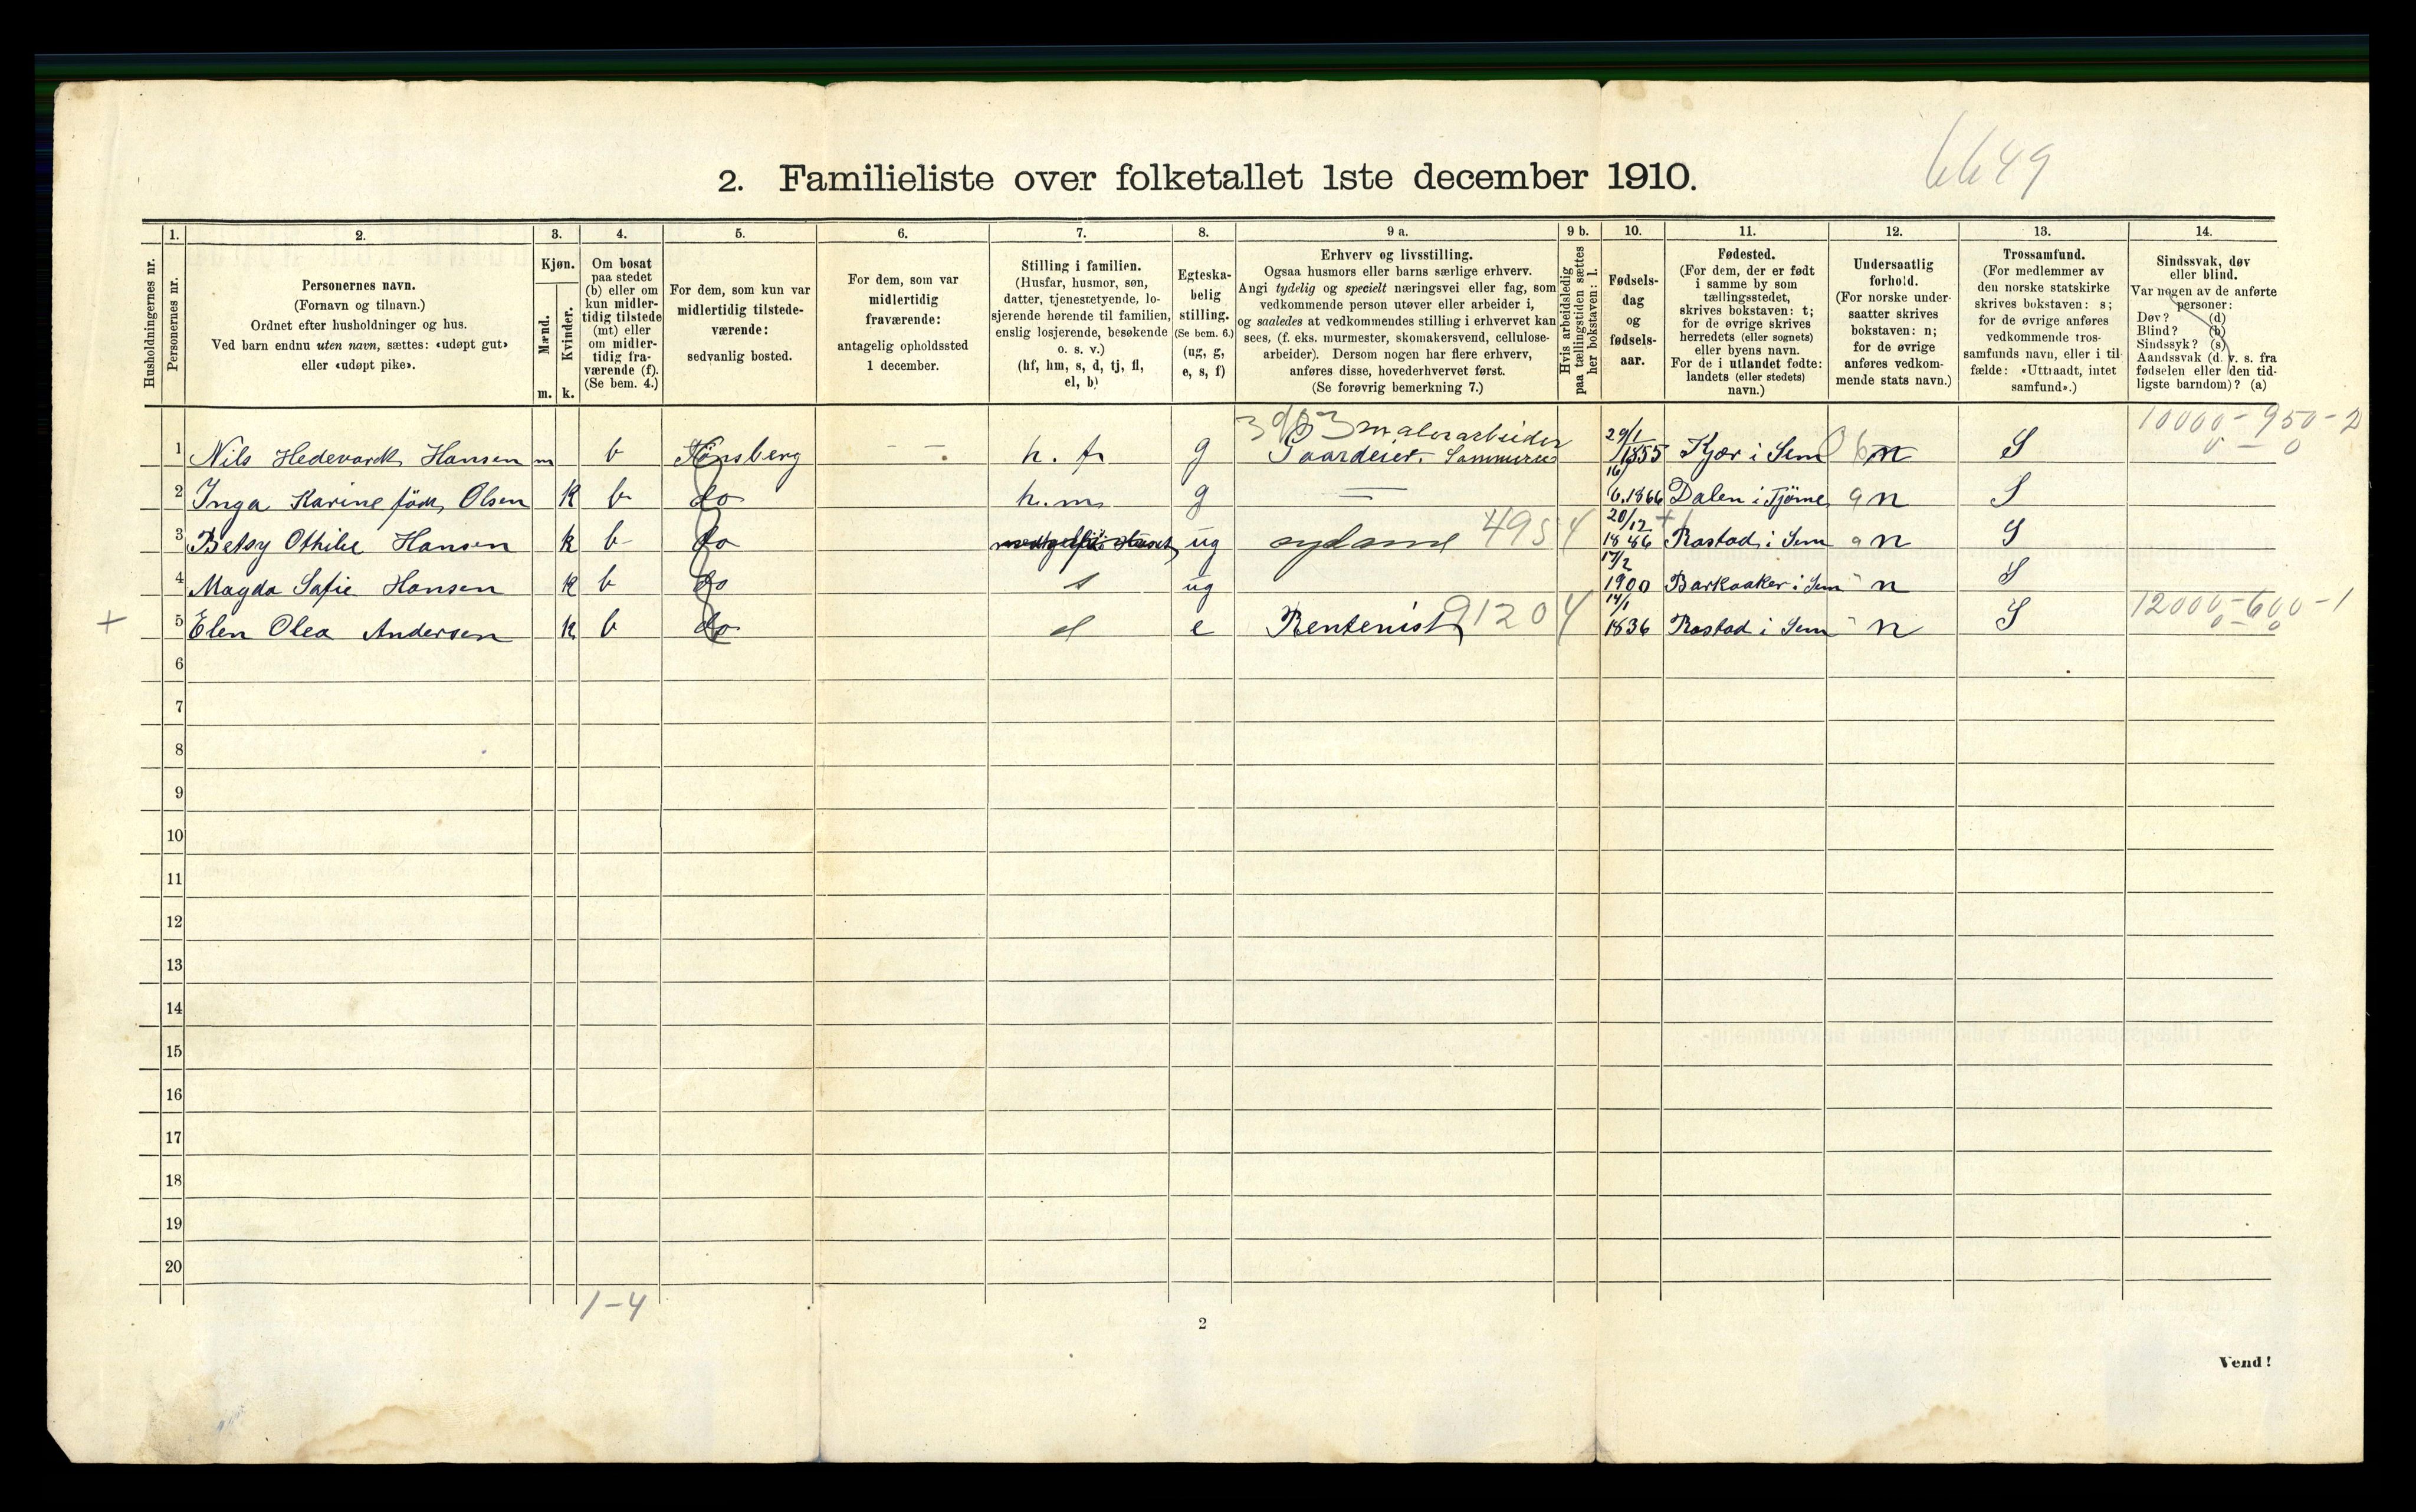 2. Familieliste over folketallet 1ste december 1910.
6649
1. 2. 3. 4. 5. 6. 7. 8. 9 a. 9 b. 10. 11. 12. 13. 14.
Husholdningernes nr.
Personernes nr.
Personernes navn.
(Fornavn og tilnavn.)
Ordnet efter husholdninger og hus.
Ved barn endnu uten navn, sættes: «udøpt gut»
eller «udøpt pike».
Kjøn.
Mænd.
Kvinder.
m. k.
Om bosat
paa stedet
(b) eller om
kun midler-
tidig tilstede
(mt) eller
om midler-
tidig fra-
værende (f).
(Se bem. 4.)
For dem, som kun var
midlertidig tilstede-
værende:
sedvanlig bosted.
For dem, som var
midlertidig
fraværende:
antagelig opholdssted
1 december.
Stilling i familien.
(Husfar, husmor, søn,
datter, tjenestetyende, lo-
sjerende hørende til familien,
enslig losjerende, besøkende
o. s. v.)
(hf, hm, s, d, tj, fl,
el, b)
Egteska-
belig
stilling.
(Se bem. 6.)
(ug, g,
e, s, f)
Erhverv og livsstilling.
Ogsaa husmors eller barns særlige erhverv.
Angi tydelig og specielt næringsvei eller fag, som
vedkommende person utøver eller arbeider i,
og saaledes at vedkommendes stilling i erhvervet kan
sees, (f. eks. murmester, skomakersvend, cellulose-
arbeider). Dersom nogen har flere erhverv,
anføres disse, hovederhvervet først.
(Se forøvrig bemerkning 7.)
Hvis arbeidsledig
paa tællingstiden sættes
her bokstaven: l.
Fødsels-
dag
og
fødsels-
aar.
Fødested.
(For dem, der er født
i samme by som
tællingsstedet,
skrives bokstaven: t;
for de øvrige skrives
herredets (eller sognets)
eller byens navn.
For de i utlandet fødte:
landets (eller stedets)
navn.)
Undersaatlig
forhold.
(For norske under-
saatter skrives
bokstaven: n;
for de øvrige
anføres vedkom-
mende stats navn.)
Trossamfund.
(For medlemmer av
den norske statskirke
skrives bokstaven: s;
for de øvrige anføres
vedkommende tros-
samfunds navn, eller i til-
fælde: «Uttraadt, intet
samfund».)
Sindssvak, døv
eller blind.
Var nogen av de anførte
personer:
Døv? (d)
Blind? (b)
Sindssyk? (s)
Aandssvak (d. v. s. fra
fødselen eller den tid-
ligste barndom)? (a)
malerarbeider 10000-950-2
1 Nils Hedevardt Hansen m b Tønsberg — h. f. g Gaardeier 29/1 1855 Kjær i Sem n S
2 Inga Karine född Olsen k b do h.m. g — 16/6.1866 Dalen i Tjöme 9 n S
3 Betsy Othilie Hansen k b do ug sydame 4954 20/12 1886 Rastad i Sem n S
4 Magda Sofie Hansen k b do s ug 17/2 1900 Barkaaker i Sem " n S
+ 5 Elen Olea Andersen k b do d e Rentenist 91204 14/1 1836 Rastad i Sem " n S 12000-600-1
6
7
8
9
10
11
12
13
14
15
16
17
18
19
20
1-4
2
Vend!